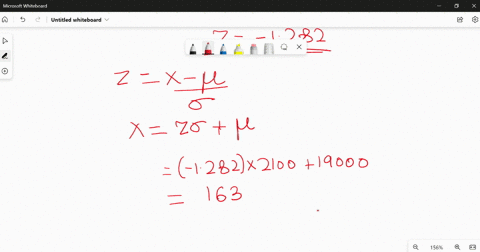 Microsoft Whiteboard
Untitled whiteboard
Z = -1.282
z = x - μ
σ
x = zσ + μ
= (-1.282) × 2100 + 19000
= 163
156%